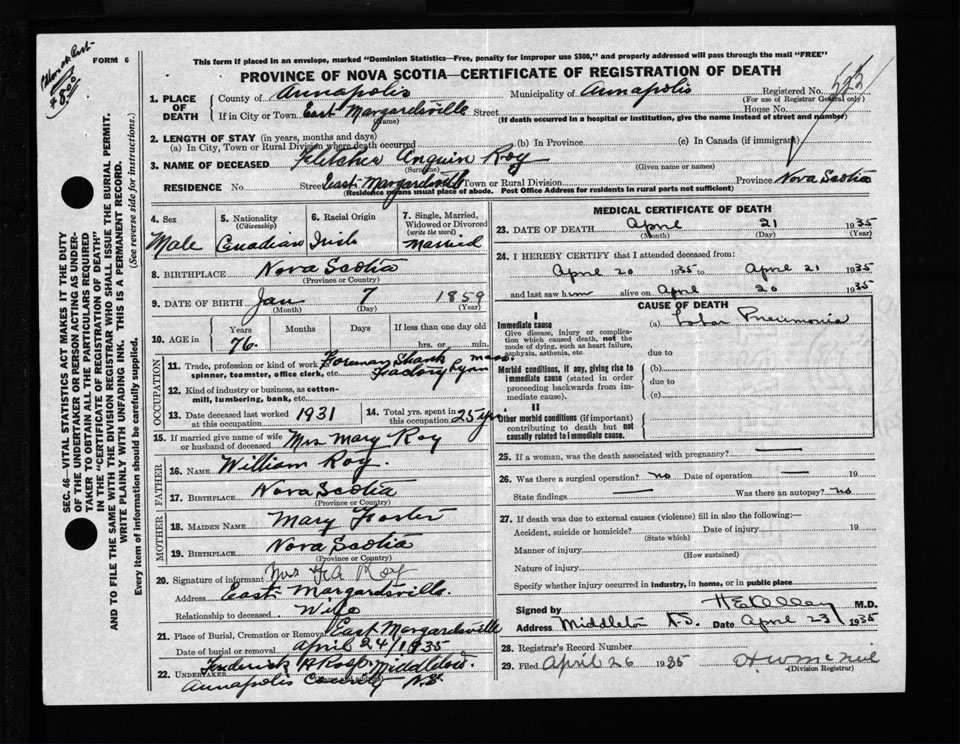 FORM 6
This form if placed in an envelope, marked "Dominion Statistics—Free, penalty for improper use $300," and properly addressed will pass through the mail "FREE"
PROVINCE OF NOVA SCOTIA—CERTIFICATE OF REGISTRATION OF DEATH
SEC. 46—VITAL STATISTICS ACT MAKES IT THE DUTY
OF THE UNDERTAKER OR PERSON ACTING AS UNDER-
TAKER TO OBTAIN ALL THE PARTICULARS REQUIRED
IN THE "CERTIFICATE OF REGISTRATION OF DEATH"
AND TO FILE THE SAME WITH THE DIVISION REGISTRAR WHO SHALL ISSUE THE BURIAL PERMIT.
WRITE PLAINLY WITH UNFADING INK. THIS IS A PERMANENT RECORD.
Every item of information should be carefully supplied. (See reverse side for instructions.)
1. PLACE OF DEATH County of Annapolis Municipality of Annapolis Registered No. 523
(For use of Registrar General only)
If in City or Town East Margaretsville Street House No.
(Name) (If death occurred in a hospital or institution, give the name instead of street and number)
2. LENGTH OF STAY (in years, months and days)
(a) In City, Town or Rural Division where death occurred (b) In Province (c) In Canada (if immigrant)
3. NAME OF DECEASED Fletcher Roy
(Surname) (Given name or names)
RESIDENCE No. Street East Margaretsville Town or Rural Division Province Nova Scotia
(Residence means usual place of abode. Post Office Address for residents in rural parts not sufficient)
4. Sex
Male
5. Nationality
(Citizenship)
Canadian
6. Racial Origin
Irish
7. Single, Married,
Widowed or Divorced
(write the word)
Married
8. BIRTHPLACE Nova Scotia
(Province or Country)
9. DATE OF BIRTH Jan 7 1859
(Month) (Day) (Year)
10. AGE in Years Months Days If less than one day old
76 hrs. or min.
OCCUPATION
11. Trade, profession or kind of work as Foreman Shank Mass.
spinner, teamster, office clerk, etc. Factory Lynn
12. Kind of industry or business, as cotton-
mill, lumbering, bank, etc.
13. Date deceased last worked 1931
at this occupation
14. Total yrs. spent in 25 yrs
this occupation
15. If married give name of wife
or husband of deceased Mrs Mary Roy
FATHER
16. NAME William Roy.
17. BIRTHPLACE Nova Scotia
(Province or Country)
MOTHER
18. MAIDEN NAME Mary Foster
19. BIRTHPLACE Nova Scotia
(Province or Country)
20. Signature of informant Mrs F A Roy
Address East Margaretsville.
Relationship to deceased Wife
21. Place of Burial, Cremation or Removal East Margaretsville
Date of burial or removal April 24/1935
22. UNDERTAKER Frederick Middleton.
Annapolis County N.S.
MEDICAL CERTIFICATE OF DEATH
23. DATE OF DEATH April 21 1935
(Month) (Day) (Year)
24. I HEREBY CERTIFY that I attended deceased from:
April 20 1935 to April 21 1935
and last saw him alive on April 20 1935
CAUSE OF DEATH
I
Immediate cause (a) Lobar Pneumonia
Give disease, injury or complica-
tion which caused death, not the
mode of dying, such as heart failure,
asphyxia, asthenia, etc.
due to
Morbid conditions, if any, giving rise to (b)
immediate cause (stated in order
proceeding backwards from im-
mediate cause).
due to
(c)
II
Other morbid conditions (if important)
contributing to death but not
causally related to immediate cause.
25. If a woman, was the death associated with pregnancy?
26. Was there a surgical operation? no Date of operation 19
State findings Was there an autopsy? no
27. If death was due to external causes (violence) fill in also the following:—
Accident, suicide or homicide? Date of injury 19
(State which)
Manner of injury
(How sustained)
Nature of injury
Specify whether injury occurred in industry, in home, or in public place
Signed by M.D.
Address Middleton N.S. Date April 23 1935
28. Registrar's Record Number
29. Filed April 26 1935 H W McNeil
(Division Registrar)